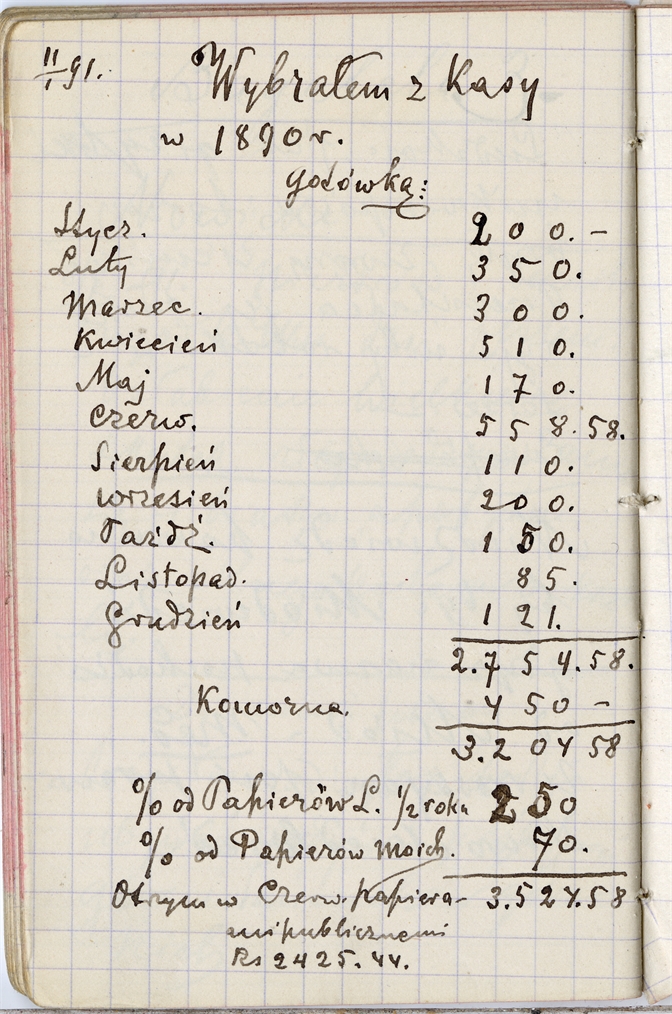 II/I 91. Wybrałem z Kasy
w 1890 r.
gotówką:
Stycz. 200.-
Luty 350.
Marzec. 300.
Kwiecień 510.
Maj 170.
Czerw. 558.58.
Sierpień 110.
Wrzesień 200.
Paźdź. 150.
Listopad. 85.
Grudzień 121.
2.754.58.
Komorne 450-
3.204 58
% od Papierów L. 1/2 roku 250
% od Papierów moich. 70.
Otrzym w Czerw. papiera- 3.524.58
mi publicznemi
Rs 2425.44.